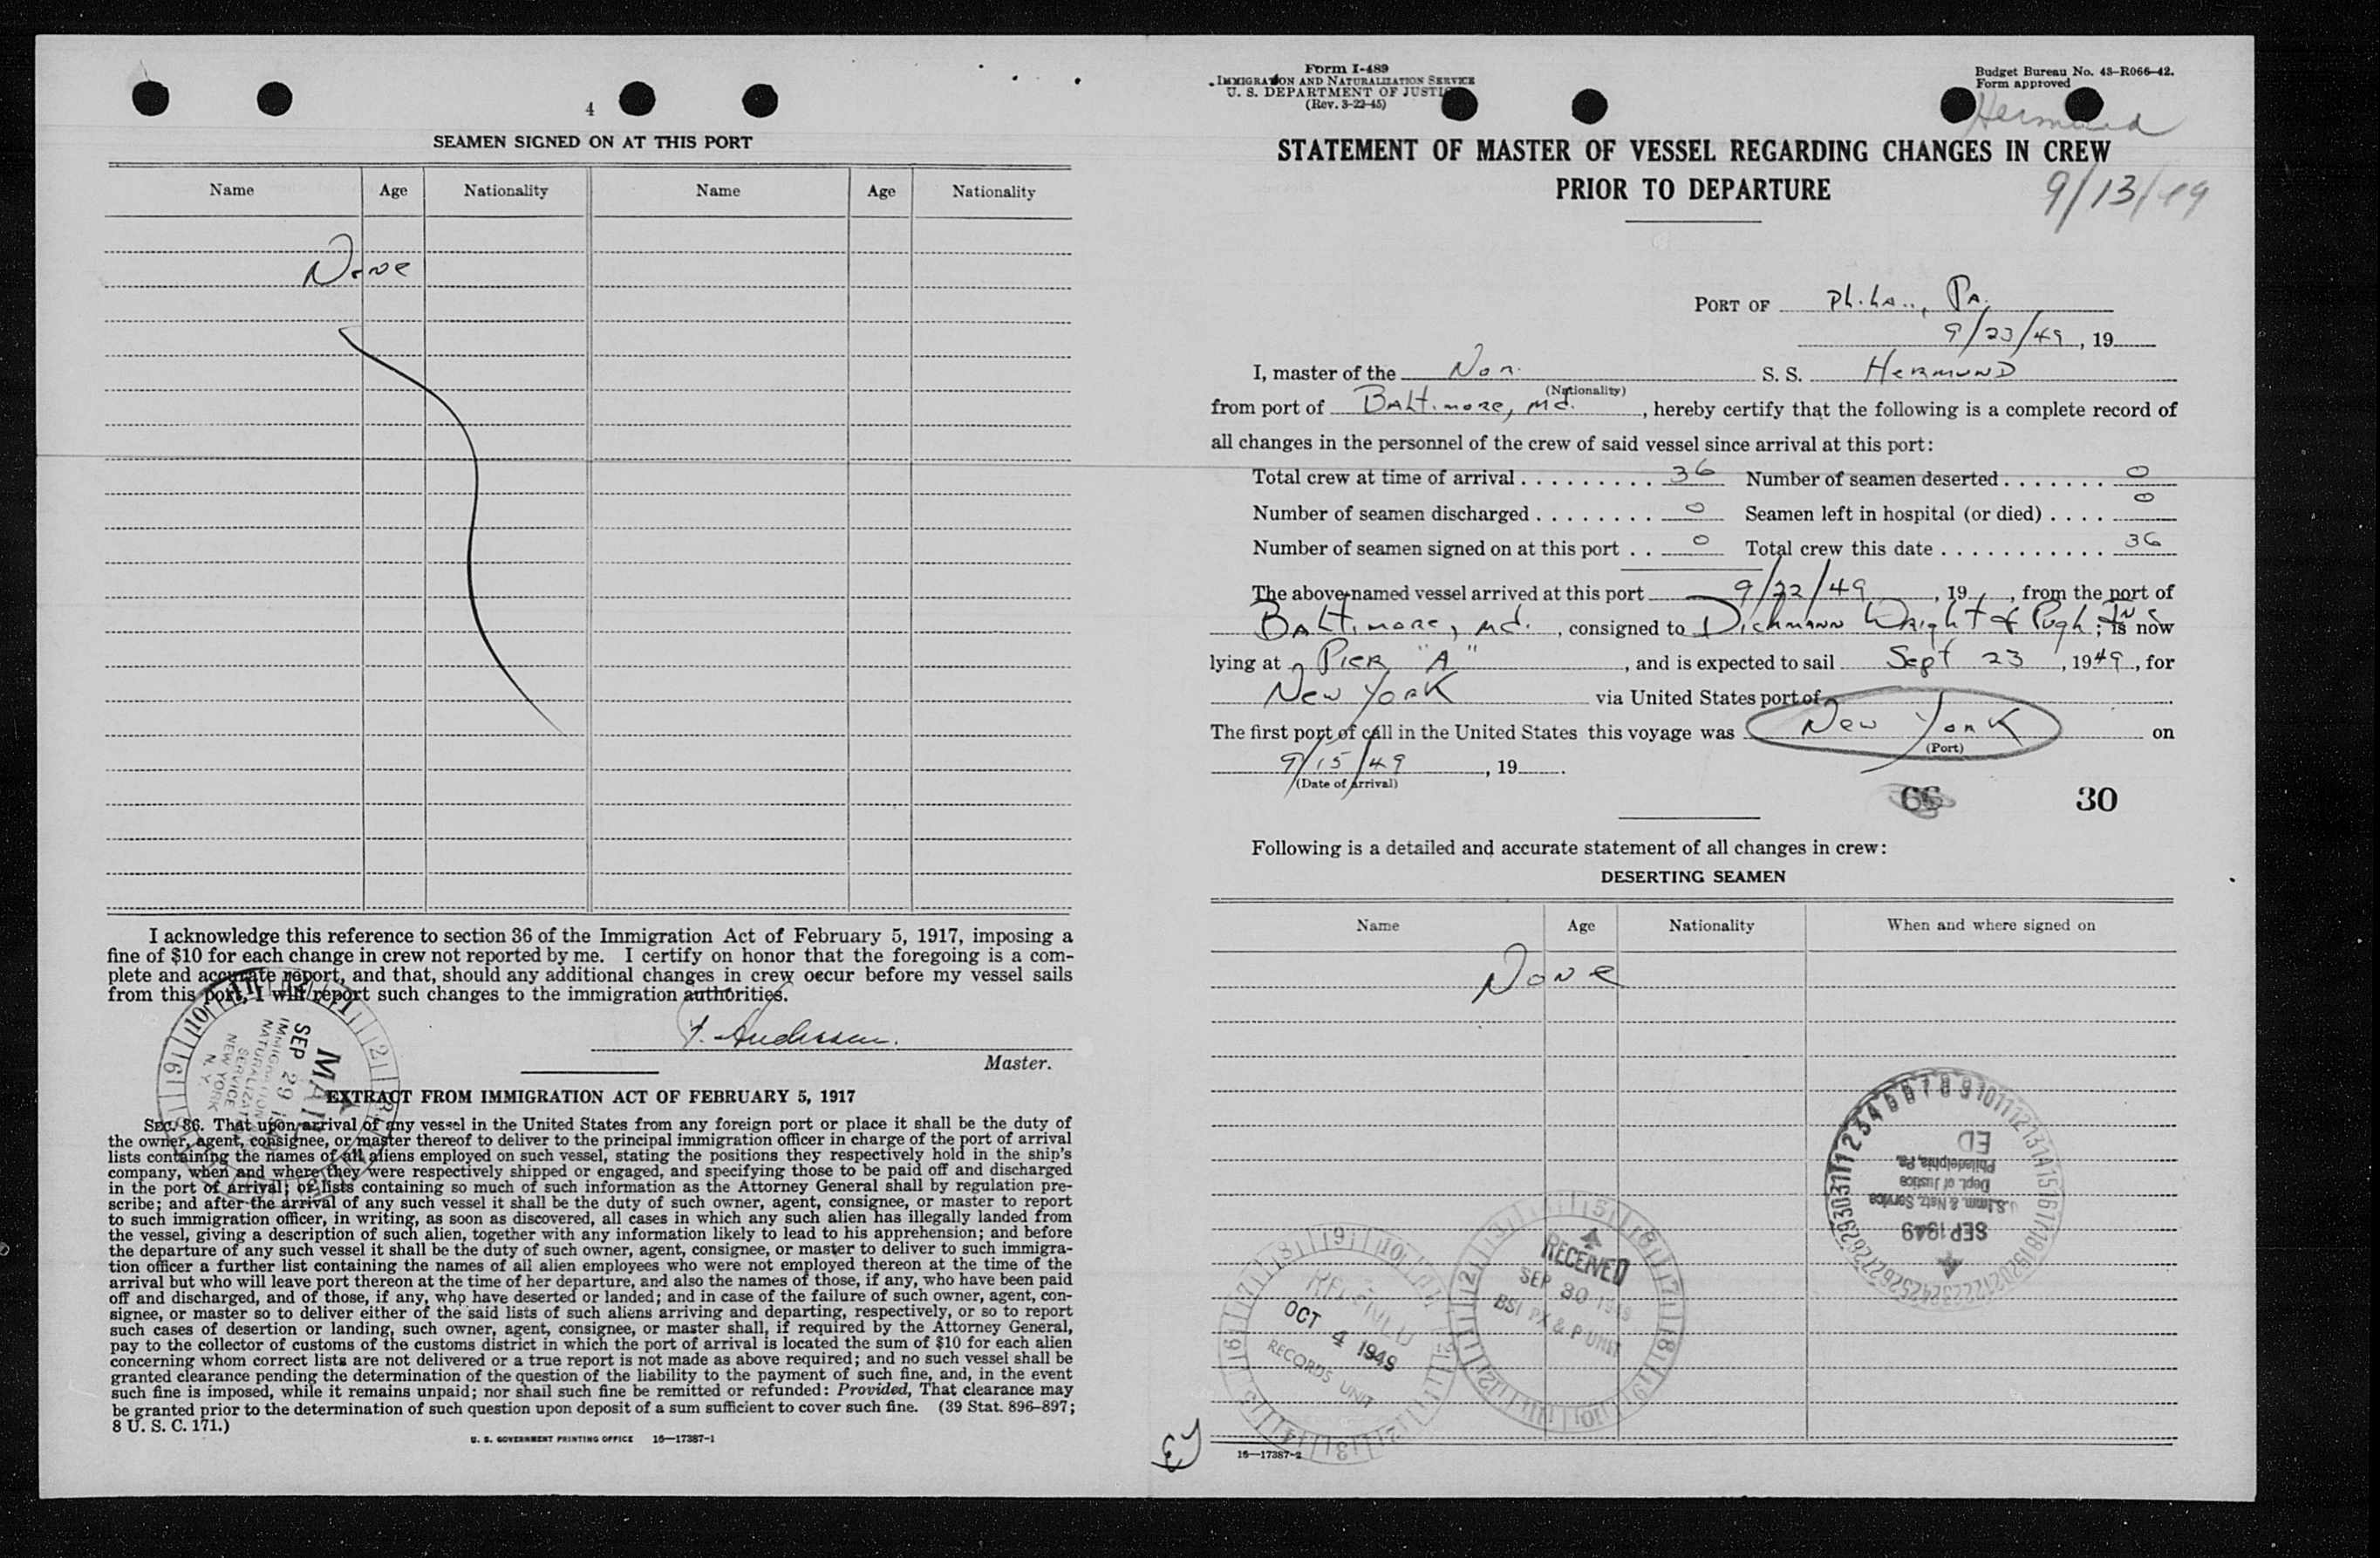 4
SEAMEN SIGNED ON AT THIS PORT
Name Age Nationality Name Age Nationality
None
I acknowledge this reference to section 36 of the Immigration Act of February 5, 1917, imposing a
fine of $10 for each change in crew not reported by me. I certify on honor that the foregoing is a com-
plete and accurate report, and that, should any additional changes in crew occur before my vessel sails
from this port, I will report such changes to the immigration authorities.
Master.
SEP 29
IMMIGRATION
SERVICE
NEW YORK
N. Y.
EXTRACT FROM IMMIGRATION ACT OF FEBRUARY 5, 1917
SEC. 36. That upon arrival of any vessel in the United States from any foreign port or place it shall be the duty of
the owner, agent, consignee, or master thereof to deliver to the principal immigration officer in charge of the port of arrival
lists containing the names of all aliens employed on such vessel, stating the positions they respectively hold in the ship's
company, when and where they were respectively shipped or engaged, and specifying those to be paid off and discharged
in the port of arrival; or lists containing so much of such information as the Attorney General shall by regulation pre-
scribe; and after the arrival of any such vessel it shall be the duty of such owner, agent, consignee, or master to report
to such immigration officer, in writing, as soon as discovered, all cases in which any such alien has illegally landed from
the vessel, giving a description of such alien, together with any information likely to lead to his apprehension; and before
the departure of any such vessel it shall be the duty of such owner, agent, consignee, or master to deliver to such immigra-
tion officer a further list containing the names of all alien employees who were not employed thereon at the time of the
arrival but who will leave port thereon at the time of her departure, and also the names of those, if any, who have been paid
off and discharged, and of those, if any, who have deserted or landed; and in case of the failure of such owner, agent, con-
signee, or master so to deliver either of the said lists of such aliens arriving and departing, respectively, or so to report
such cases of desertion or landing, such owner, agent, consignee, or master shall, if required by the Attorney General,
pay to the collector of customs of the customs district in which the port of arrival is located the sum of $10 for each alien
concerning whom correct lists are not delivered or a true report is not made as above required; and no such vessel shall be
granted clearance pending the determination of the question of the liability to the payment of such fine, and, in the event
such fine is imposed, while it remains unpaid; nor shall such fine be remitted or refunded: Provided, That clearance may
be granted prior to the determination of such question upon deposit of a sum sufficient to cover such fine. (39 Stat. 896–897;
8 U. S. C. 171.)
U. S. GOVERNMENT PRINTING OFFICE 16—17387-1
Form I-489
IMMIGRATION AND NATURALIZATION SERVICE
U. S. DEPARTMENT OF JUSTICE
(Rev. 3-22-45)
Budget Bureau No. 43–R066–42.
Form approved
Hermund
STATEMENT OF MASTER OF VESSEL REGARDING CHANGES IN CREW
PRIOR TO DEPARTURE
9/13/49
PORT OF Phila., Pa.
9/23/49, 19
I, master of the Nor. S. S. Hermund
(Nationality)
from port of Baltimore, Md., hereby certify that the following is a complete record of
all changes in the personnel of the crew of said vessel since arrival at this port:
Total crew at time of arrival 36 Number of seamen deserted 0
Number of seamen discharged 0 Seamen left in hospital (or died) 0
Number of seamen signed on at this port 0 Total crew this date 36
The above-named vessel arrived at this port 9/22/49, 19, from the port of
Baltimore, Md., consigned to Dichmann Wright & Pugh Inc; is now
lying at Pier "A", and is expected to sail Sept 23, 1949, for
New York via United States port of
The first port of call in the United States this voyage was New York on
(Port)
9/15/49, 19.
(Date of arrival)
66 30
Following is a detailed and accurate statement of all changes in crew:
DESERTING SEAMEN
Name Age Nationality When and where signed on
None
ED
Philadelphia, Pa.
Dept. of Justice
U.S. Imm. & Natz. Service
SEP 1949
RECEIVED
SEP 30 1949
BSI PX & P UNIT
RECEIVED
OCT 4 1949
RECORDS UNIT
16—17387-2